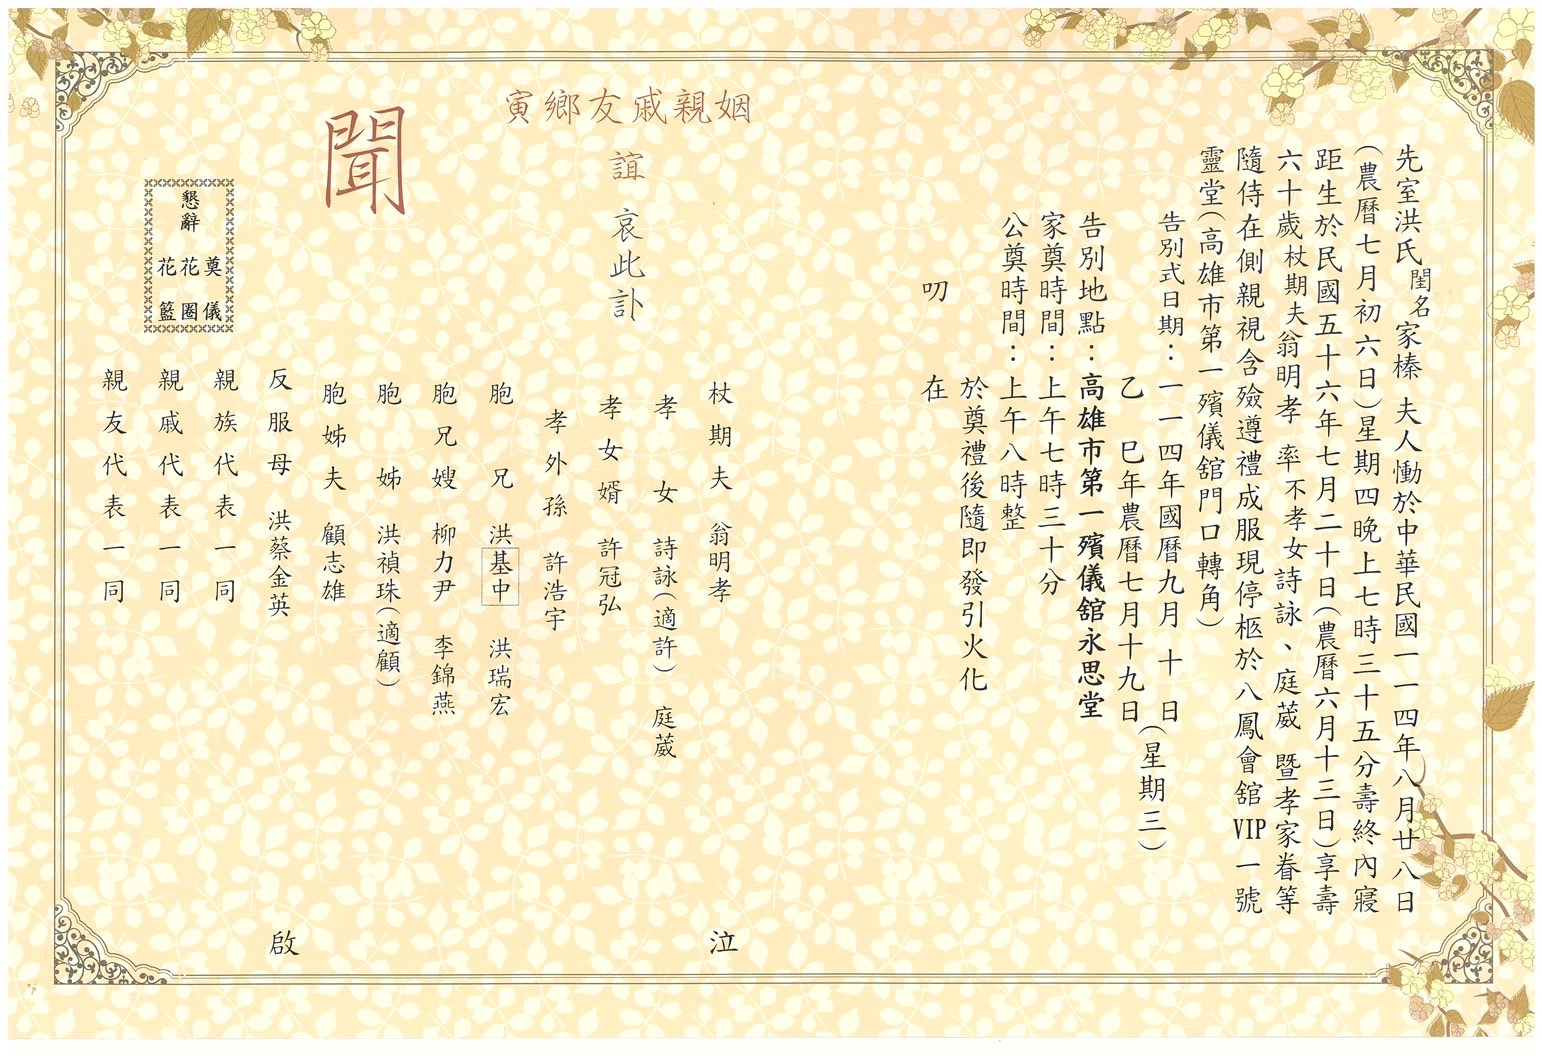 先室洪氏閨名家榛 夫人慟於中華民國一一四年八月廿八日
(農曆七月初六日)星期四晚上七時三十五分壽終內寢
距生於民國五十六年七月二十日(農曆六月十三日)享壽
六十歲杖期夫翁明孝 率不孝女詩詠、庭葳 暨孝家眷等
隨侍在側親視含殮遵禮成服現停柩於八鳳會舘VIP一號
靈堂(高雄市第一殯儀舘門口轉角)
告別式日期:一一四年國曆九月 十 日
乙 巳年農曆七月十九日
(星期三)
告別地點:高雄市第一殯儀舘永思堂
家奠時間:上午七時三十分
公奠時間:上午八時整
於奠禮後隨即發引火化
叨 在
姻親戚友鄉寅
誼 哀此訃
聞
杖期夫 翁明孝
孝 女 詩詠(適許) 庭葳
孝女婿 許冠弘
孝外孫 許浩宇
胞 兄 洪基中 洪瑞宏
胞兄嫂 柳力尹 李錦燕
胞 姊 洪禎珠(適顧)
胞姊夫 顧志雄
反服母 洪蔡金英
親族代表一同
親戚代表一同
親友代表一同
泣
啟
懇辭
奠儀
花圈
花籃